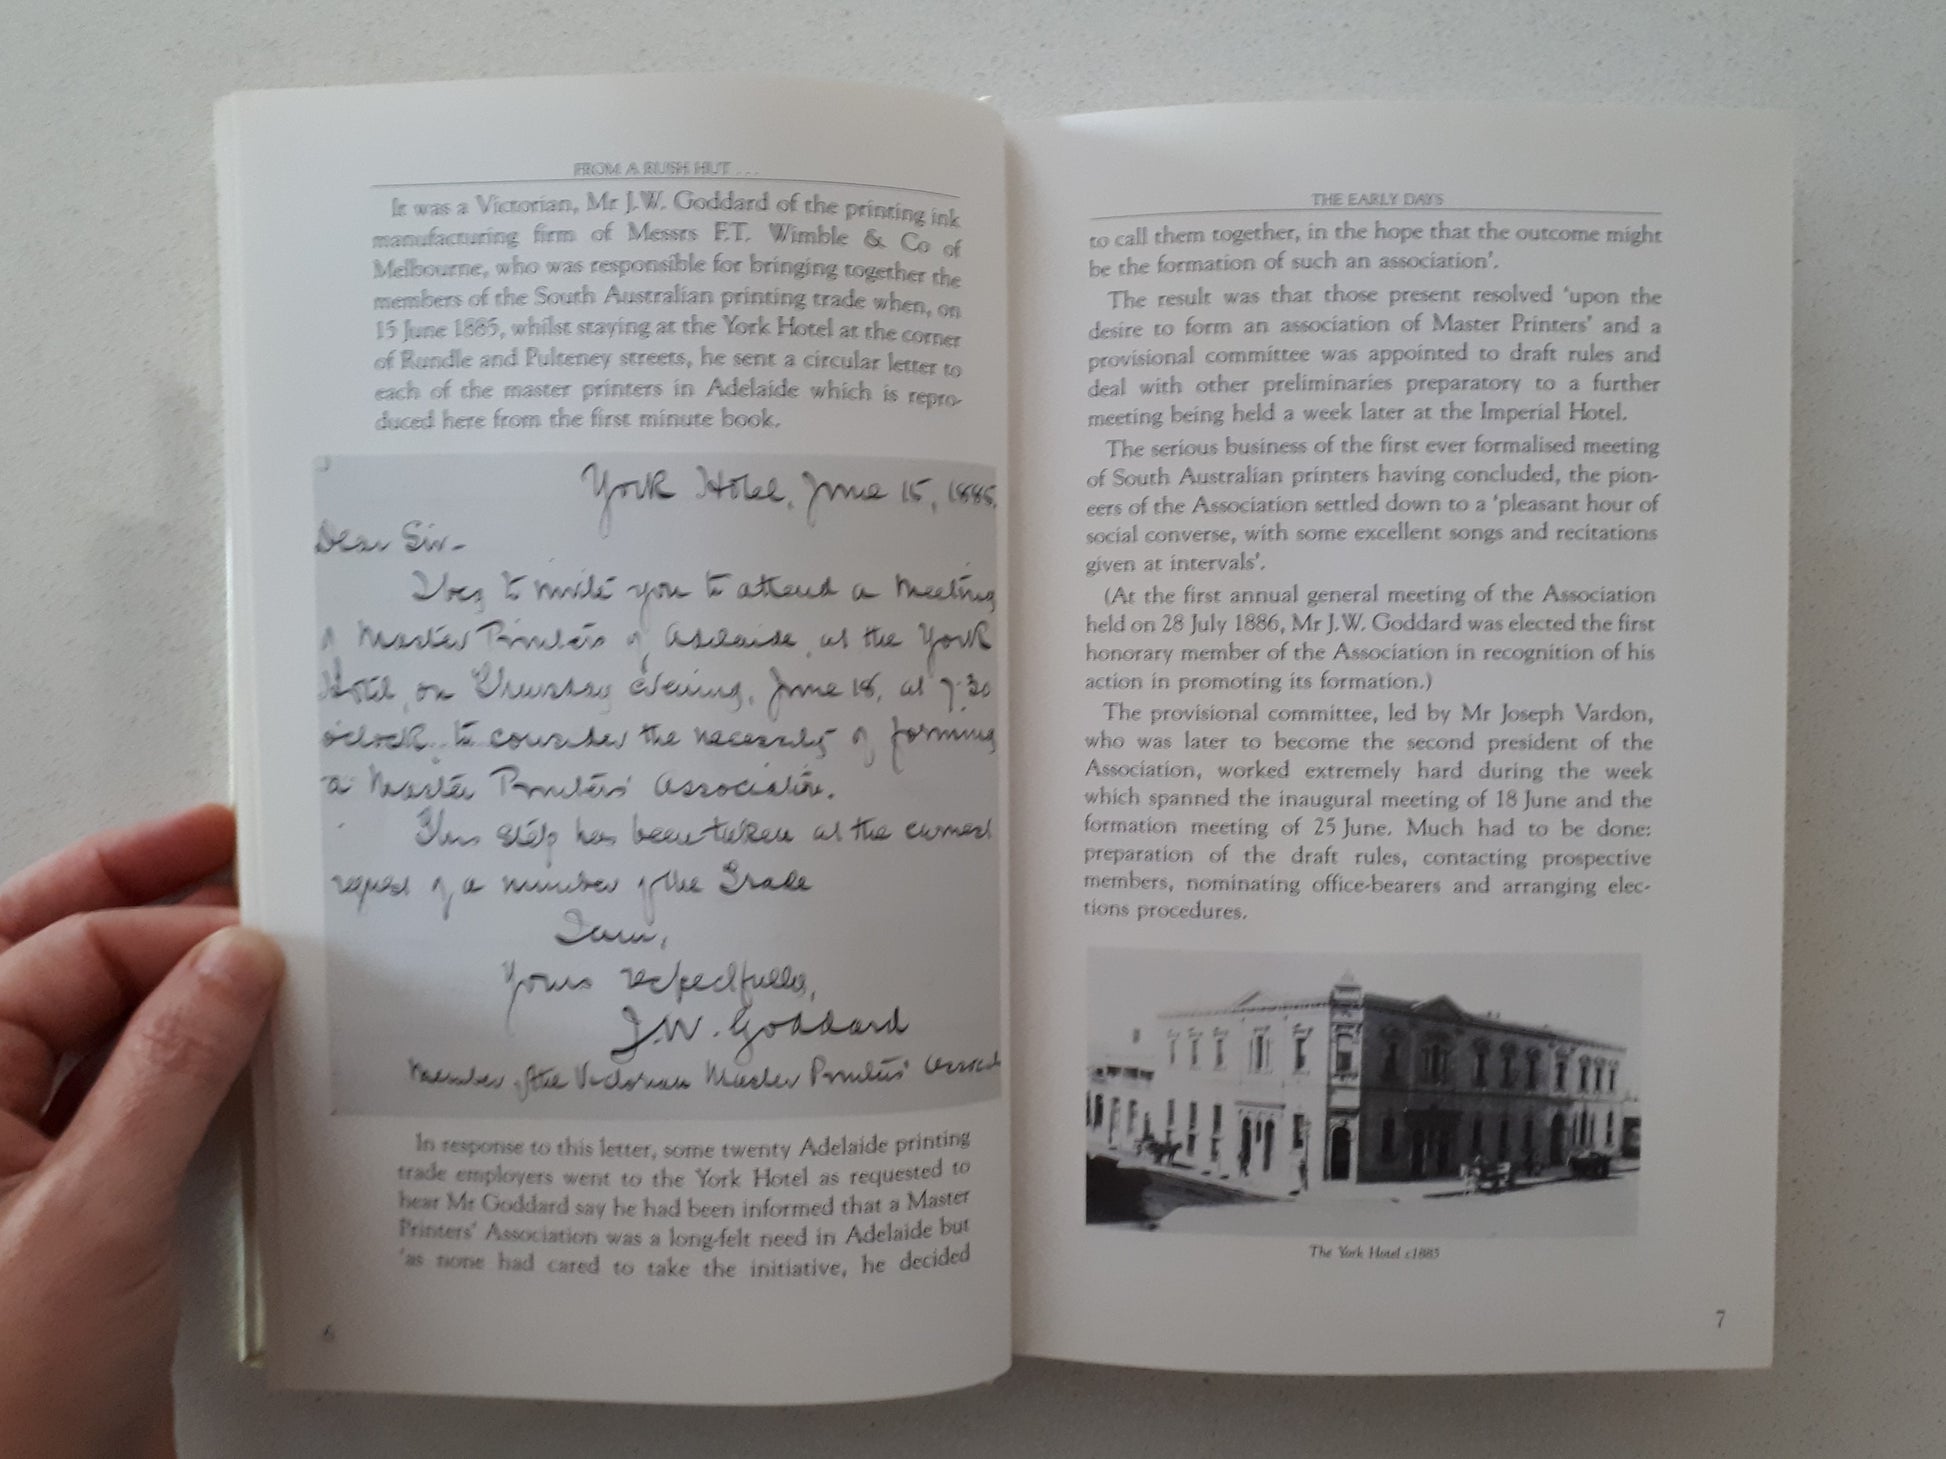 FROM A RUSH HUT . . .
It was a Victorian, Mr J.W. Goddard of the printing ink
manufacturing firm of Messrs F.T. Wimble & Co of
Melbourne, who was responsible for bringing together the
members of the South Australian printing trade when, on
15 June 1885, whilst staying at the York Hotel at the corner
of Rundle and Pulteney streets, he sent a circular letter to
each of the master printers in Adelaide which is repro-
duced here from the first minute book.
York Hotel, June 15, 1885.
Dear Sir-
I beg to invite you to attend a Meeting
of Master Printers of Adelaide, at the York
Hotel, on Thursday evening, June 18, at 7.30
o'clock, to consider the necessity of forming
a Master Printers' Association.
This step has been taken at the earnest
request of a number of the Trade
I am,
Yours respectfully,
J.W. Goddard
Member of the Victorian Master Printers' Associ
In response to this letter, some twenty Adelaide printing
trade employers went to the York Hotel as requested to
hear Mr Goddard say he had been informed that a Master
Printers' Association was a long-felt need in Adelaide but
'as none had cared to take the initiative, he decided
6
THE EARLY DAYS
to call them together, in the hope that the outcome might
be the formation of such an association'.
The result was that those present resolved 'upon the
desire to form an association of Master Printers' and a
provisional committee was appointed to draft rules and
deal with other preliminaries preparatory to a further
meeting being held a week later at the Imperial Hotel.
The serious business of the first ever formalised meeting
of South Australian printers having concluded, the pion-
eers of the Association settled down to a 'pleasant hour of
social converse, with some excellent songs and recitations
given at intervals'.
(At the first annual general meeting of the Association
held on 28 July 1886, Mr J.W. Goddard was elected the first
honorary member of the Association in recognition of his
action in promoting its formation.)
The provisional committee, led by Mr Joseph Vardon,
who was later to become the second president of the
Association, worked extremely hard during the week
which spanned the inaugural meeting of 18 June and the
formation meeting of 25 June. Much had to be done:
preparation of the draft rules, contacting prospective
members, nominating office-bearers and arranging elec-
tions procedures.
The York Hotel c1885
7